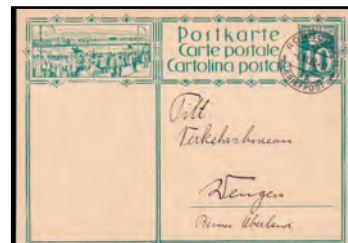 Postkarte
Carte postale
Cartolina postale
10
Tit.
Verkehrsbureau
Wengen
Berner Oberland